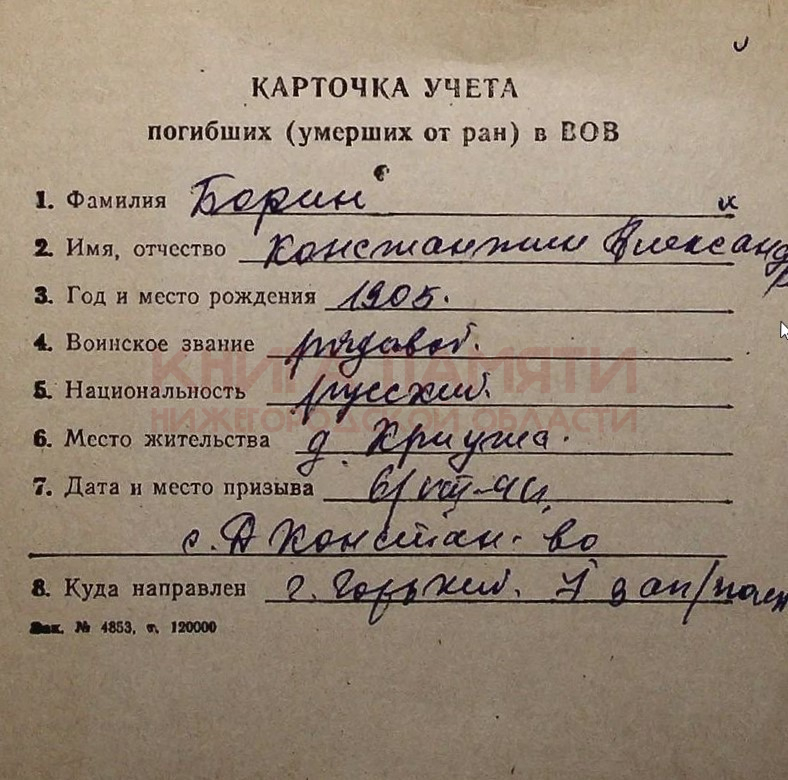 КАРТОЧКА УЧЕТА
погибших (умерших от ран) в ВОВ
1. Фамилия Борин
2. Имя, отчество Константин Александр
3. Год и место рождения 1905.
4. Воинское звание рядовой.
КНИГА ПАМЯТИ
5. Национальность русский.
НИЖЕГОРОДСКОЙ ОБЛАСТИ
6. Место жительства д. Криуша.
7. Дата и место призыва 6/VIII-41,
с. Д Констан-во
8. Куда направлен г. Горький. зап/
Зак. № 4853, т. 120000